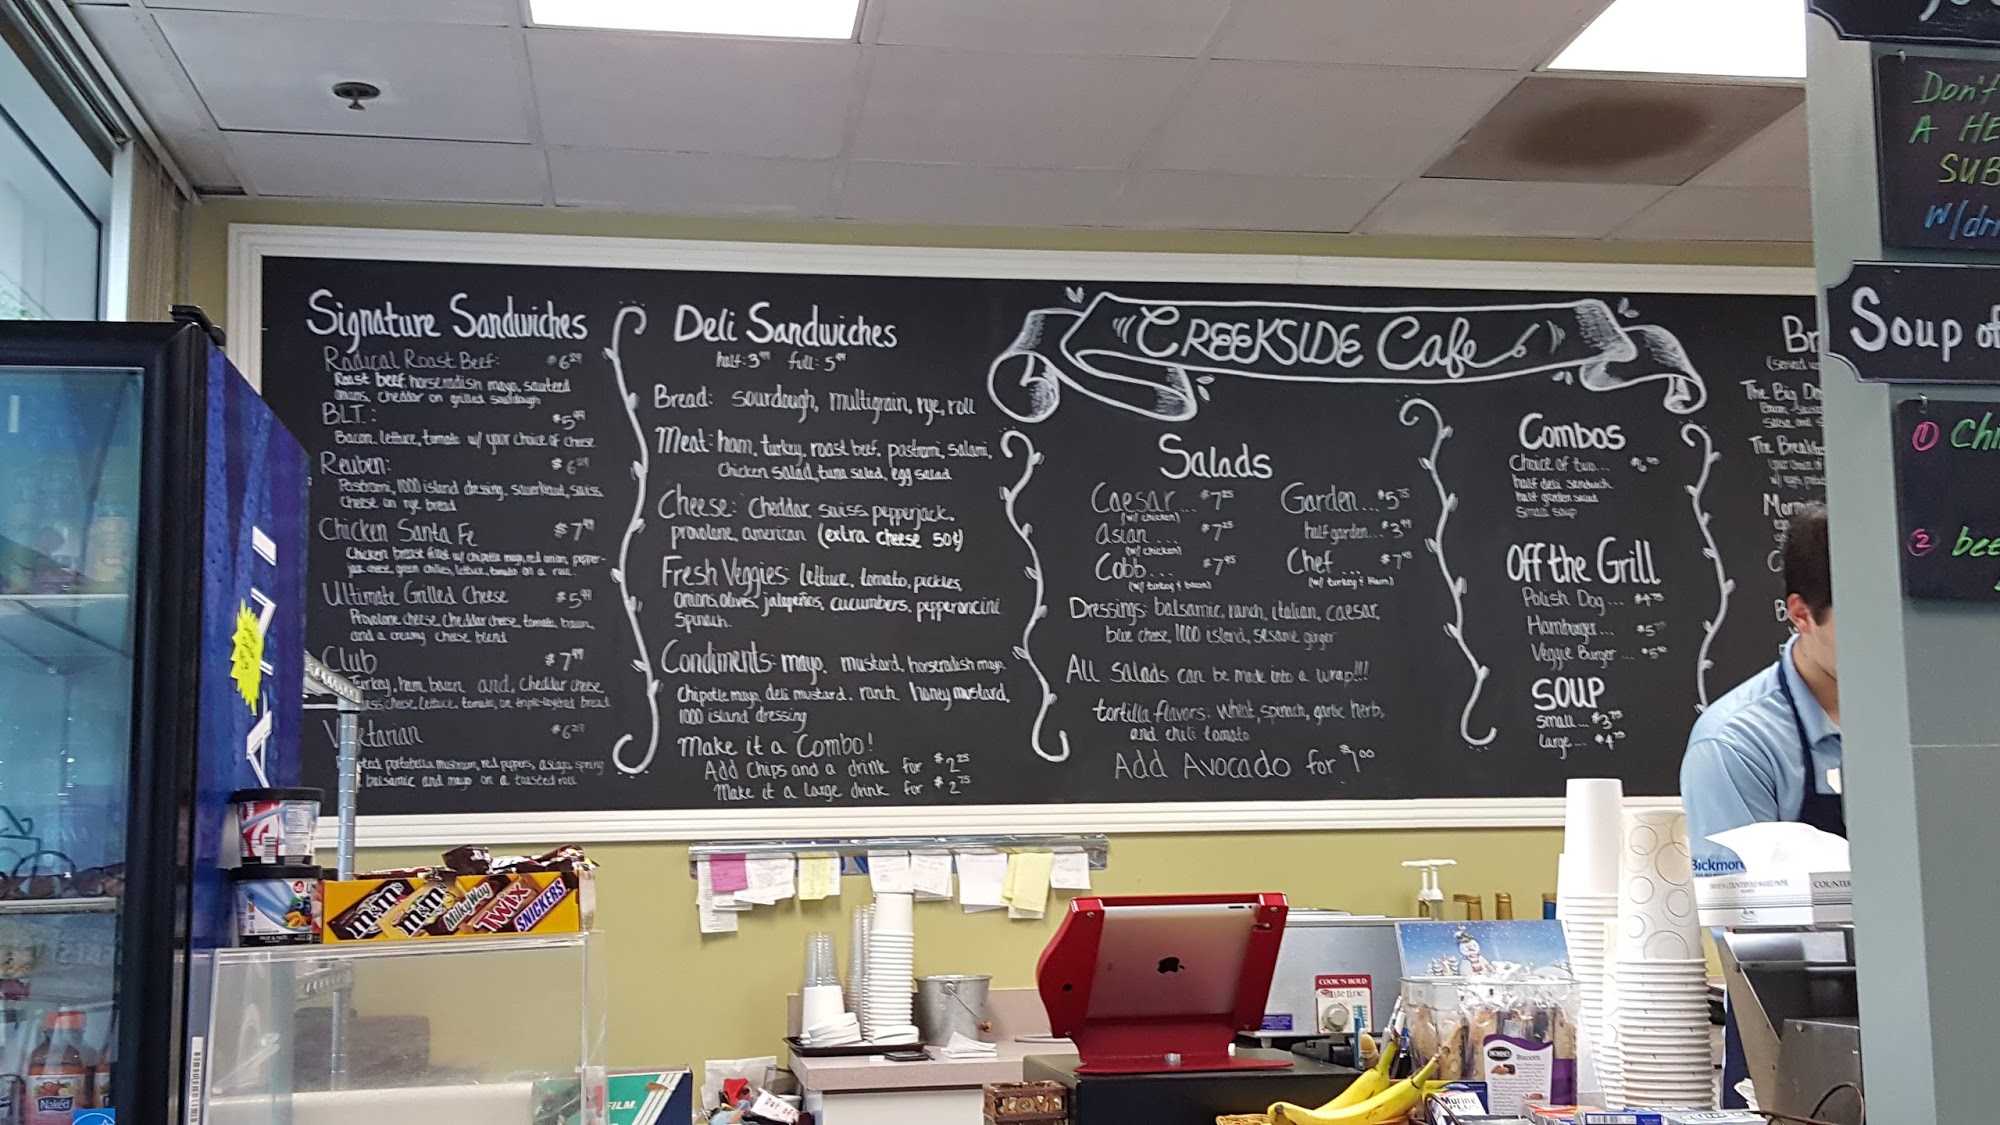 Signature Sandwiches
Radical Roast Beef:
Roast beef, horseradish mayo, sauteed
onions, cheddar on grilled sourdough
BLT.: $5.99
Bacon, lettuce, tomato w/ your choice of cheese
Reuben:
Pastrami, 1000 island dressing, sauerkraut, swiss
cheese on rye bread
Chicken Santa Fe $7.49
Chicken breast fillet w/ chipotle mayo, red onion, pepper-
jack cheese, green chilies, lettuce, tomato on a roll.
Ultimate Grilled Cheese $5.99
Provolone cheese, cheddar cheese, tomato, bacon,
and a creamy cheese blend
Club $7.49
Turkey, ham, bacon and, cheddar cheese,
cheese, lettuce, tomato, on triple-layered bread
portabella mushroom, red peppers, asiago spring
balsamic and mayo on a toasted roll
Deli Sandwiches
half: 3.99 full: 5.99
Bread: sourdough, multigrain, rye, roll
Meat: ham, turkey, roast beef, pastrami, salami,
chicken salad, tuna salad, egg salad
Cheese: Cheddar, swiss, pepperjack,
provolone, american (extra cheese 50¢)
Fresh Veggies: lettuce, tomato, pickles,
onions, olives, jalapeños, cucumbers, pepperoncini
Spinach.
Condiments: mayo, mustard, horseradish mayo,
Chipotle mayo, deli mustard, ranch, honey mustard,
1000 island dressing
Make it a Combo!
Add Chips and a drink for $2.25
Make it a large drink for $2.75
Creekside Cafe
Salads
Caesar... $7.25
(w/ chicken)
Asian ... $7.25
(w/ chicken)
Cobb... $7.95
(w/ turkey & bacon)
Garden... $5.75
half garden... $3.99
Chef...
(w/ turkey & ham)
Dressings: balsamic, ranch, italian, caesar,
blue cheese, 1000 island, sesame ginger
All salads can be made into a wrap!!!
tortilla flavors: wheat, spinach, garlic herb,
and chili tomato
Add Avocado for $1.00
Combos
Choice of two...
half deli sandwich
half garden salad
Small soup
Off the Grill
Polish Dog...
Hamburger...
Veggie Burger...
Soup
Small... $3.75
Large... $4.75
The Big
The
Don't
A
w/
Soup of
1
2
m&m's
m&m's
Milky Way
Twix
Snickers
Naked
FILM.
COOK 'N HOLD
LOVE
Biscotti
Murine
Bickmore